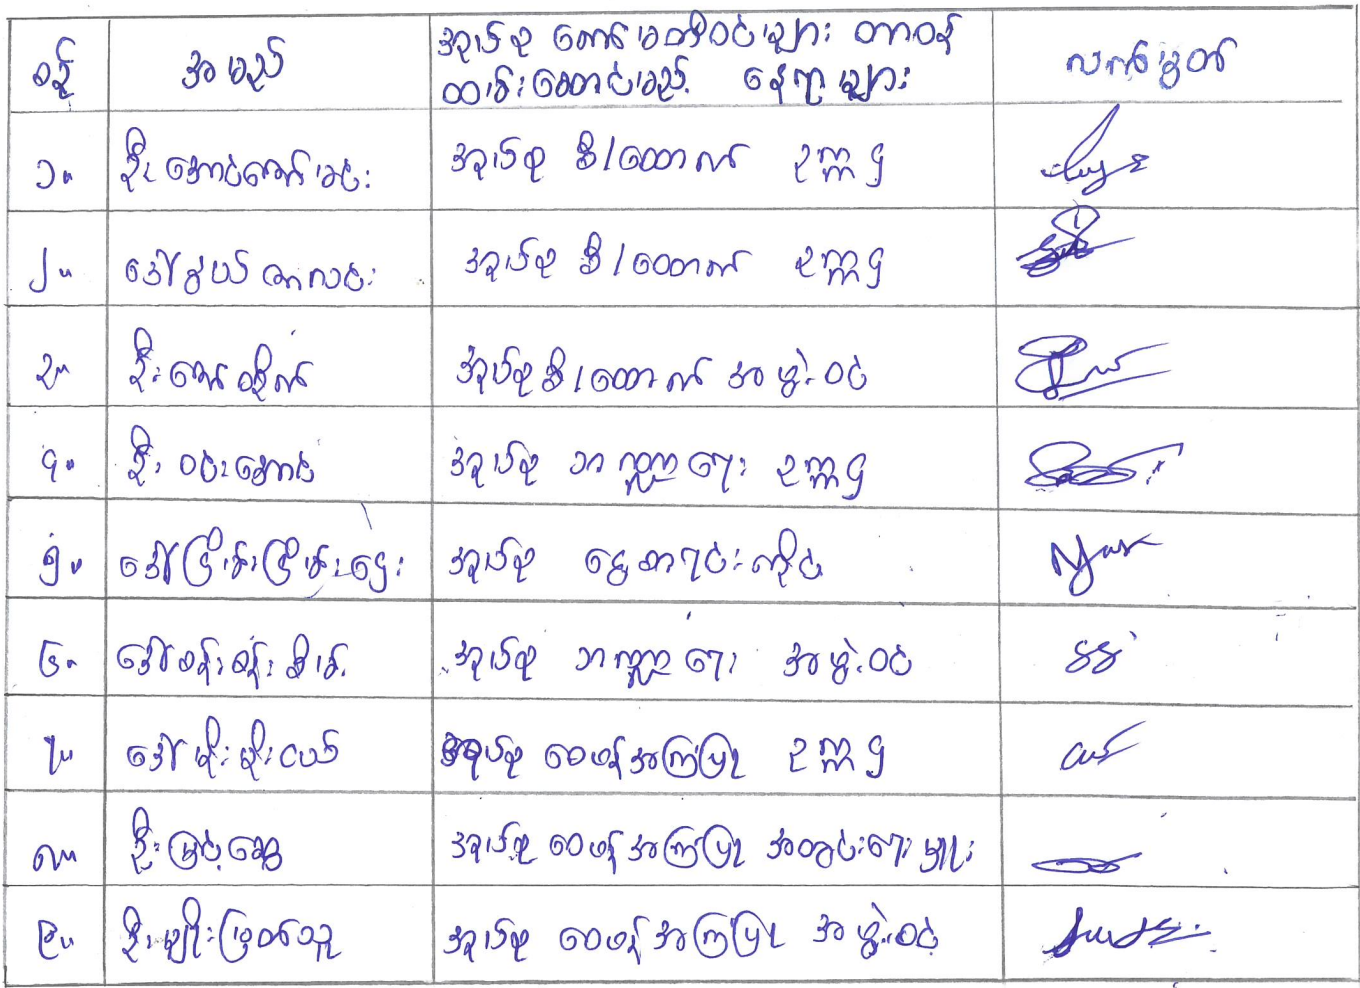 စဉ်
အမည်
အုပ်စု ကော်မတီဝင်များ တာဝန်
ထမ်းဆောင်မည့် နေရာများ
လက်မှတ်
၁။ ဦးအောင်ကျော်မင်း အုပ်စု စီ/ထောက် ဥက္ကဌ
၂။ အုပ်စု စီ/ထောက် ဥက္ကဌ
၃။ အုပ်စု စီ/ထောက် အဖွဲ့ဝင်
၄။ ဦးဝင်းအောင် အုပ်စု ဘဏ္ဍာရေး ဥက္ကဌ
၅။ ဒေါ်ငြိမ်းငြိမ်းဌေး အုပ်စု ငွေစာရင်းကိုင်
၆။ အုပ်စု ဘဏ္ဍာရေး အဖွဲ့ဝင်
၇။ ဒေါ်မိုးမိုးငယ် အုပ်စု ဝေဖန်အကြံပြု ဥက္ကဌ
၈။ ဦးမြင့်ဆွေ အုပ်စု ဝေဖန်အကြံပြု အတွင်းရေးမှူး
၉။ ဦးမျိုးမြတ်သူ အုပ်စု ဝေဖန်အကြံပြု အဖွဲ့ဝင်